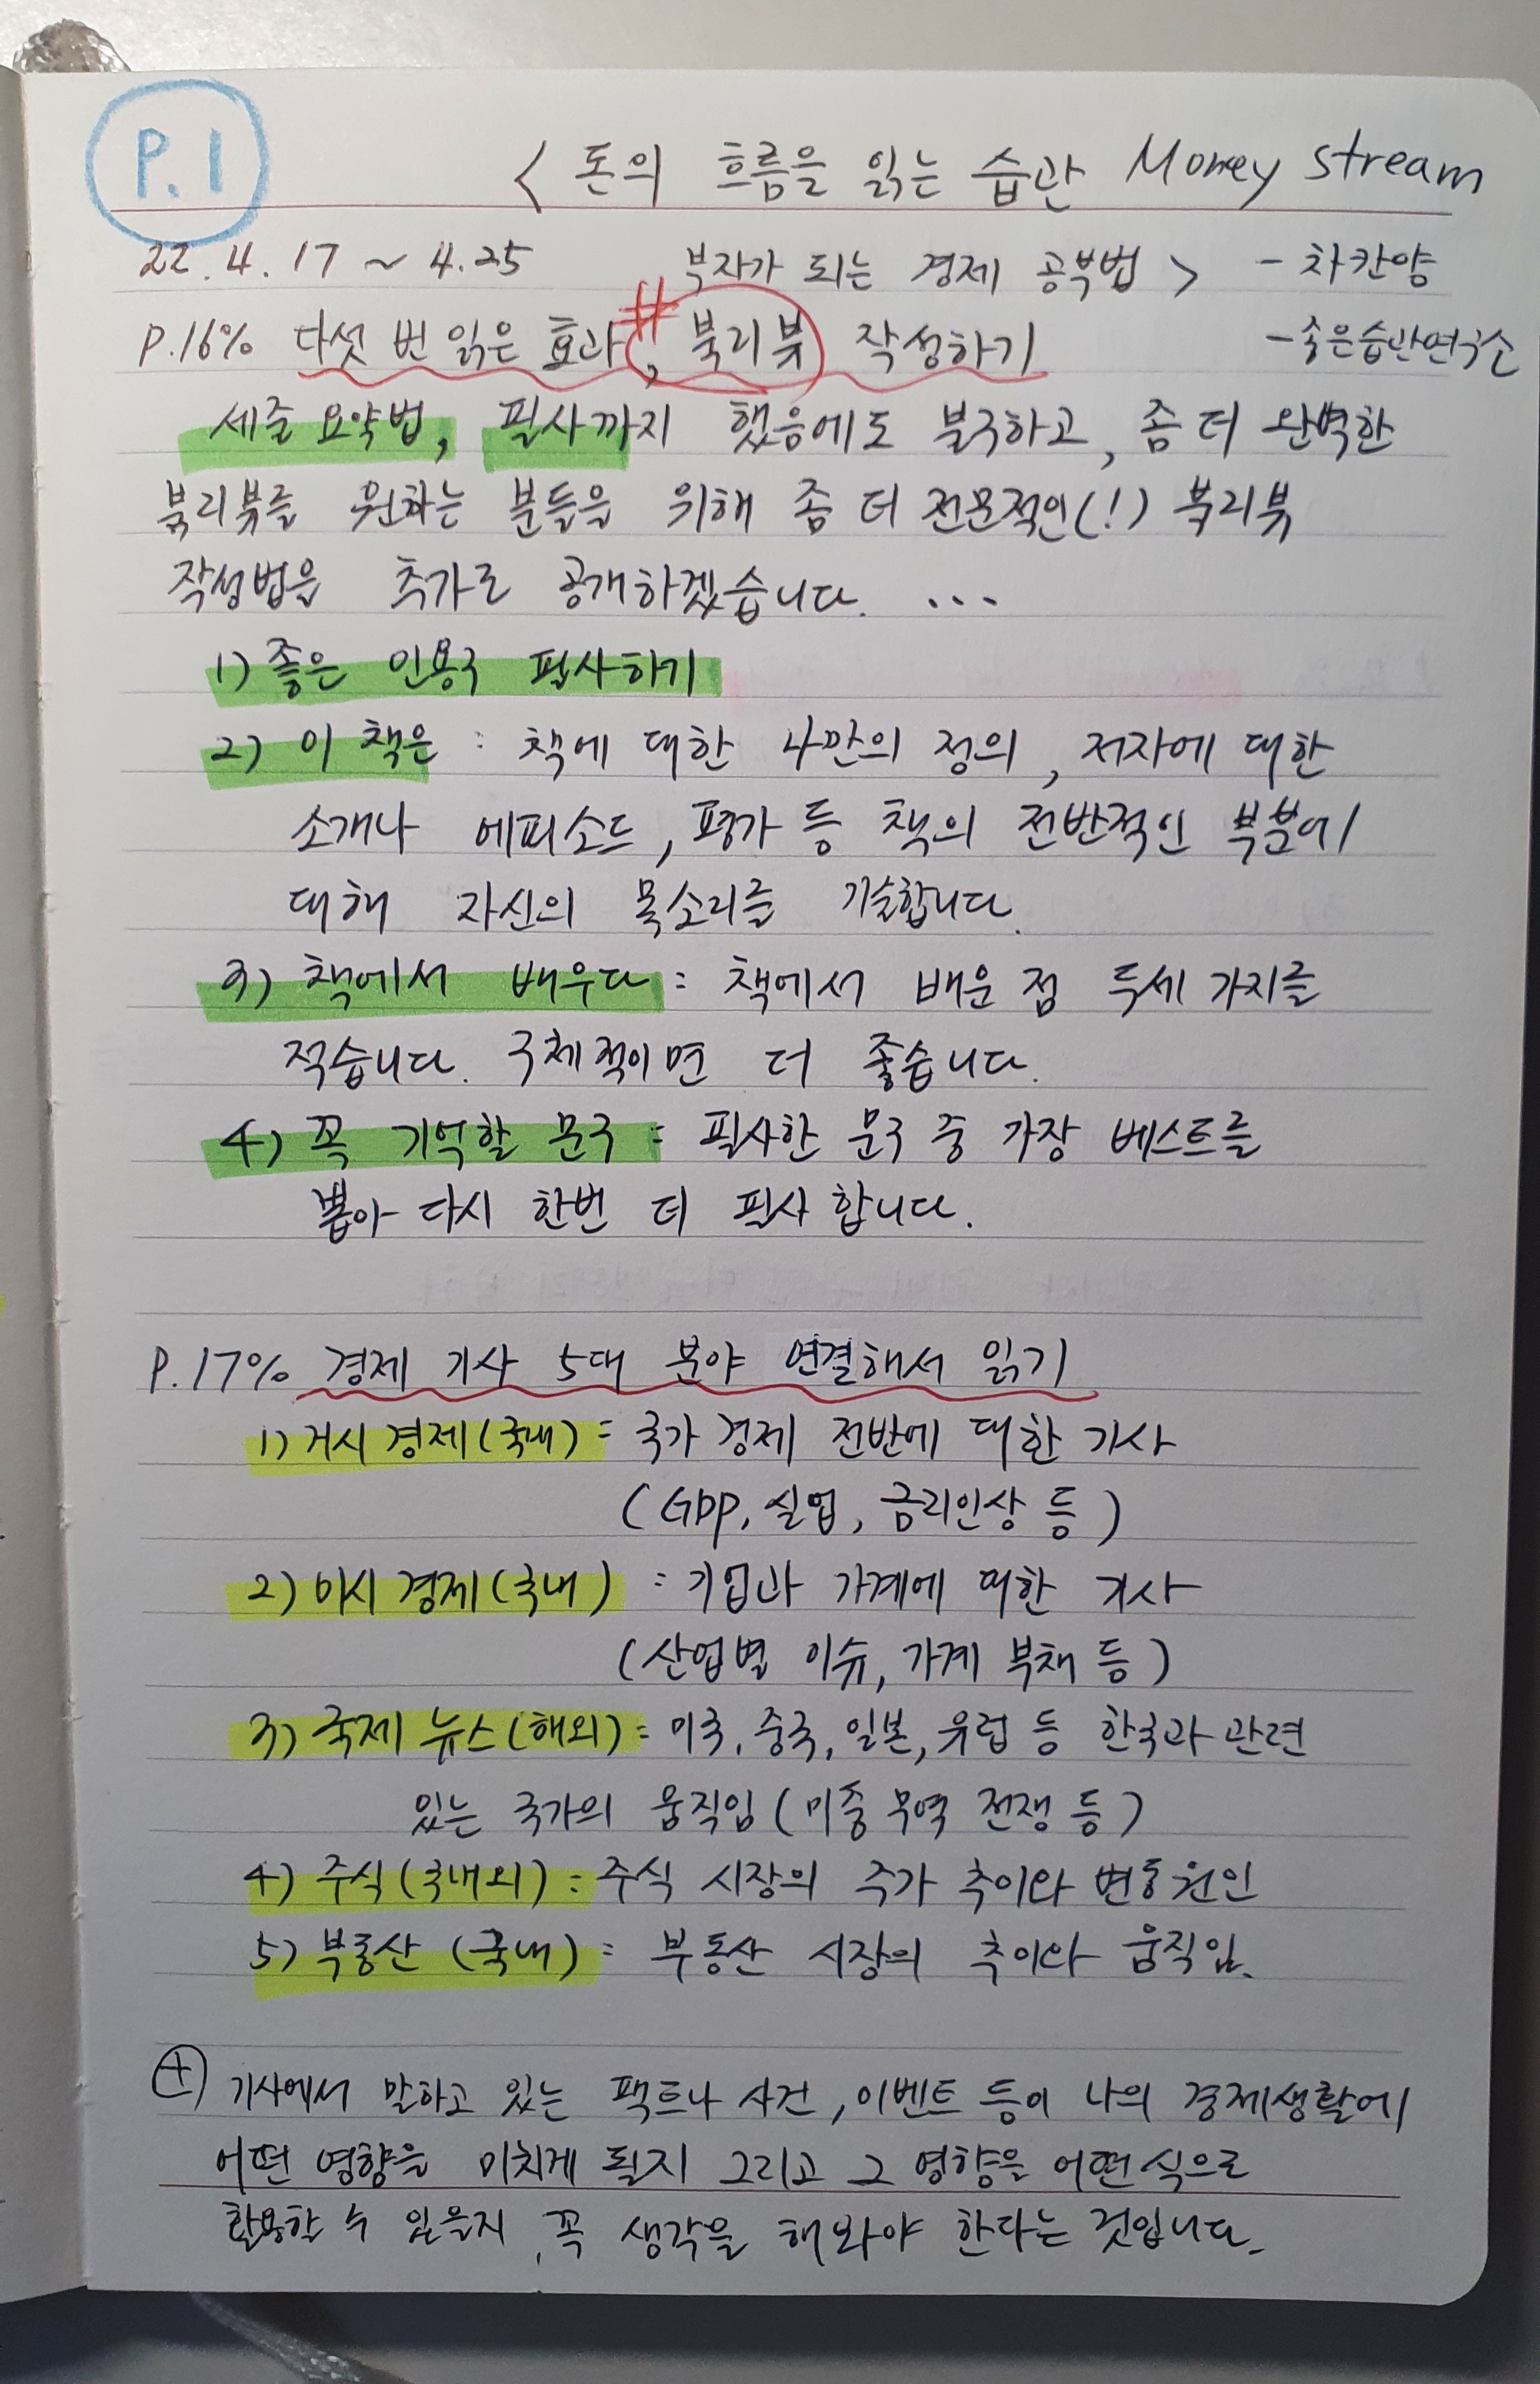 P.1
< 돈의 흐름을 읽는 습관 Money stream
22.4.17 ~ 4.25 부자가 되는 경제 공부법 > - 차칸양
P.16% 다섯 번 읽은 효과, #북리뷰 작성하기 - 좋은습관연구소
세줄 요약법, 필사까지 했음에도 불구하고, 좀 더 완벽한
북리뷰를 원하는 분들을 위해 좀 더 전문적인(!) 북리뷰
작성법을 추가로 공개하겠습니다. ...
1) 좋은 인용구 필사하기
2) 이 책은 : 책에 대한 나만의 정의, 저자에 대한
소개나 에피소드, 평가 등 책의 전반적인 부분에
대해 자신의 목소리를 기술합니다.
3) 책에서 배우다 : 책에서 배운 점 두세 가지를
적습니다. 구체적이면 더 좋습니다.
4) 꼭 기억할 문구 : 필사한 문구 중 가장 베스트를
뽑아 다시 한번 더 필사 합니다.
P.17% 경제 기사 5대 분야 연결해서 읽기
1) 거시 경제(국내) : 국가 경제 전반에 대한 기사
(GDP, 실업, 금리인상 등)
2) 미시 경제(국내) : 기업과 가계에 대한 기사
(산업별 이슈, 가계 부채 등)
3) 국제 뉴스(해외) : 미국, 중국, 일본, 유럽 등 한국과 관련
있는 국가의 움직임(미중 무역 전쟁 등)
4) 주식(국내외) : 주식 시장의 주가 추이와 변동원인
5) 부동산 (국내) : 부동산 시장의 추이와 움직임.
⊕ 기사에서 말하고 있는 팩트나 사건, 이벤트 등이 나의 경제생활에
어떤 영향을 미치게 될지 그리고 그 영향을 어떤 식으로
활용할 수 있을지, 꼭 생각을 해봐야 한다는 것입니다.